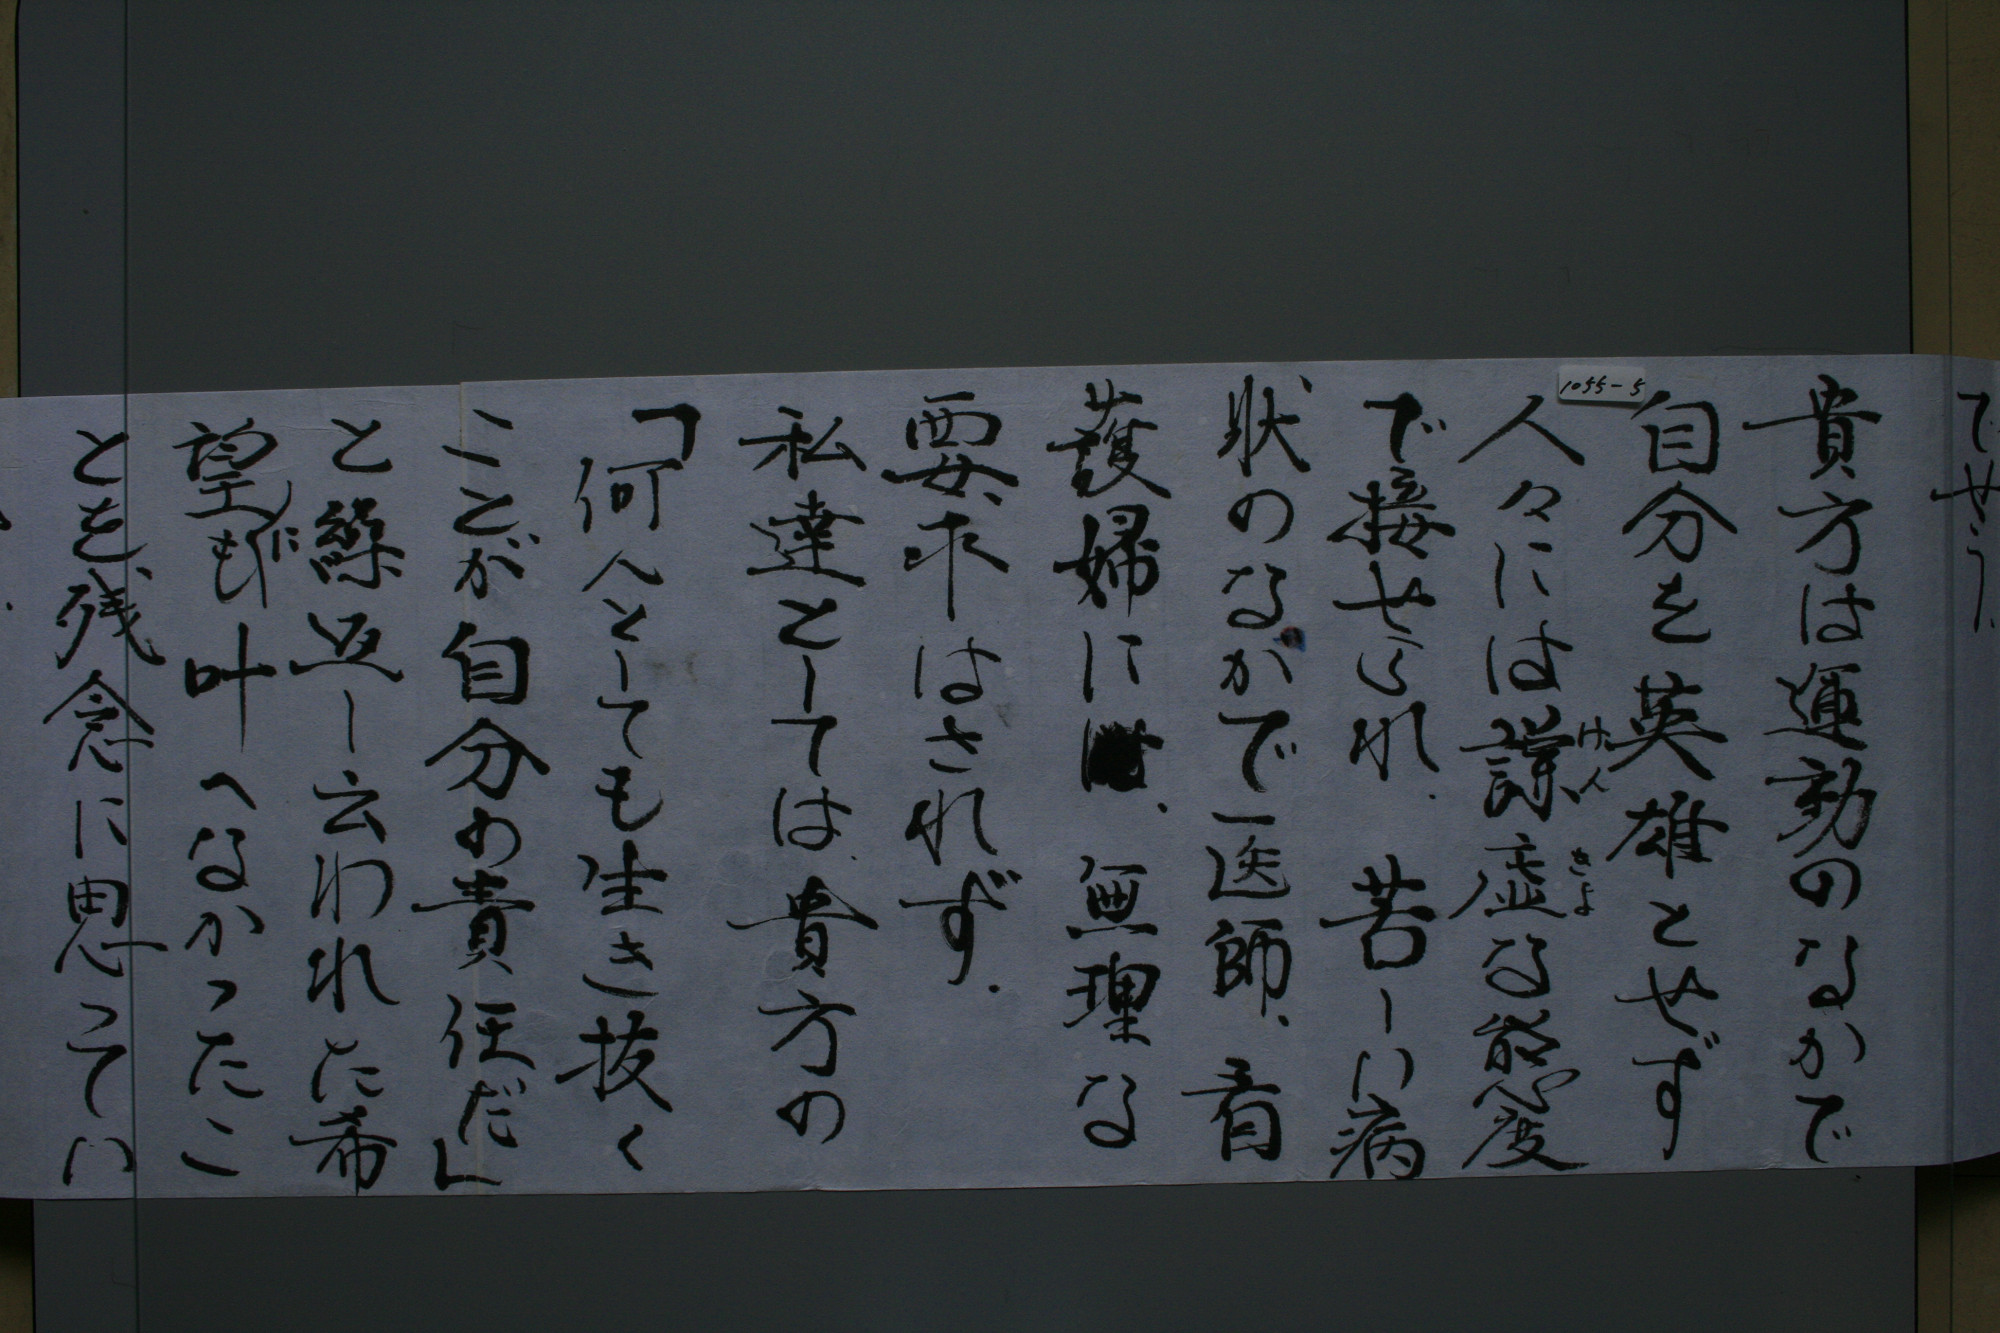 でせう、
貴方は運動のなかで
自分を英雄とせず
人々には謙虚な態度
けん
きよ
で接せられ、苦しい病
状のなかで医師、看
護婦には、無理な
要求はされず、
私達としては貴方の
「何んとしても生き抜く
ことが自分の責任だ」
と繰返し云われた希
望も叶へなかったこ
に
とを残念に思ってい
1055-5